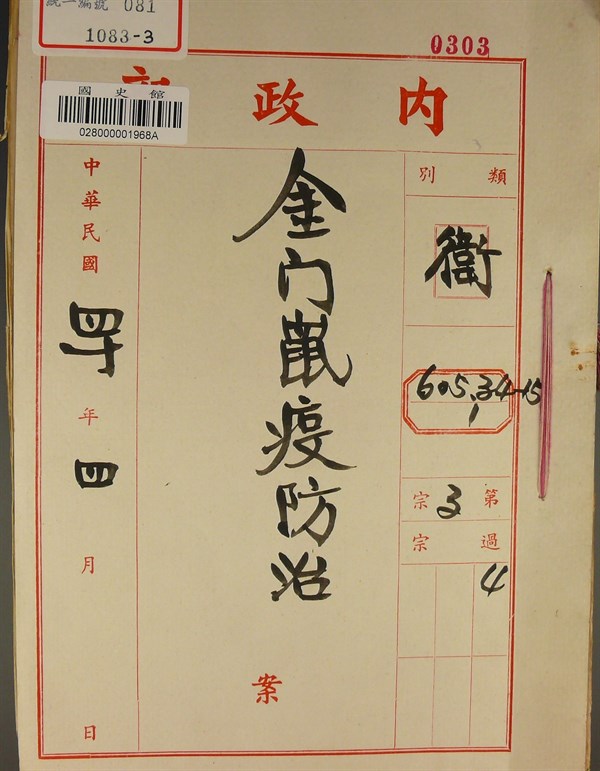 統一編號 081
1083-3
國史館
028000001968A
0303
內政部
類別
衛
605.34-15
1
第3宗
過宗
4
金门鼠疫防治案
中華民國四十年四月日